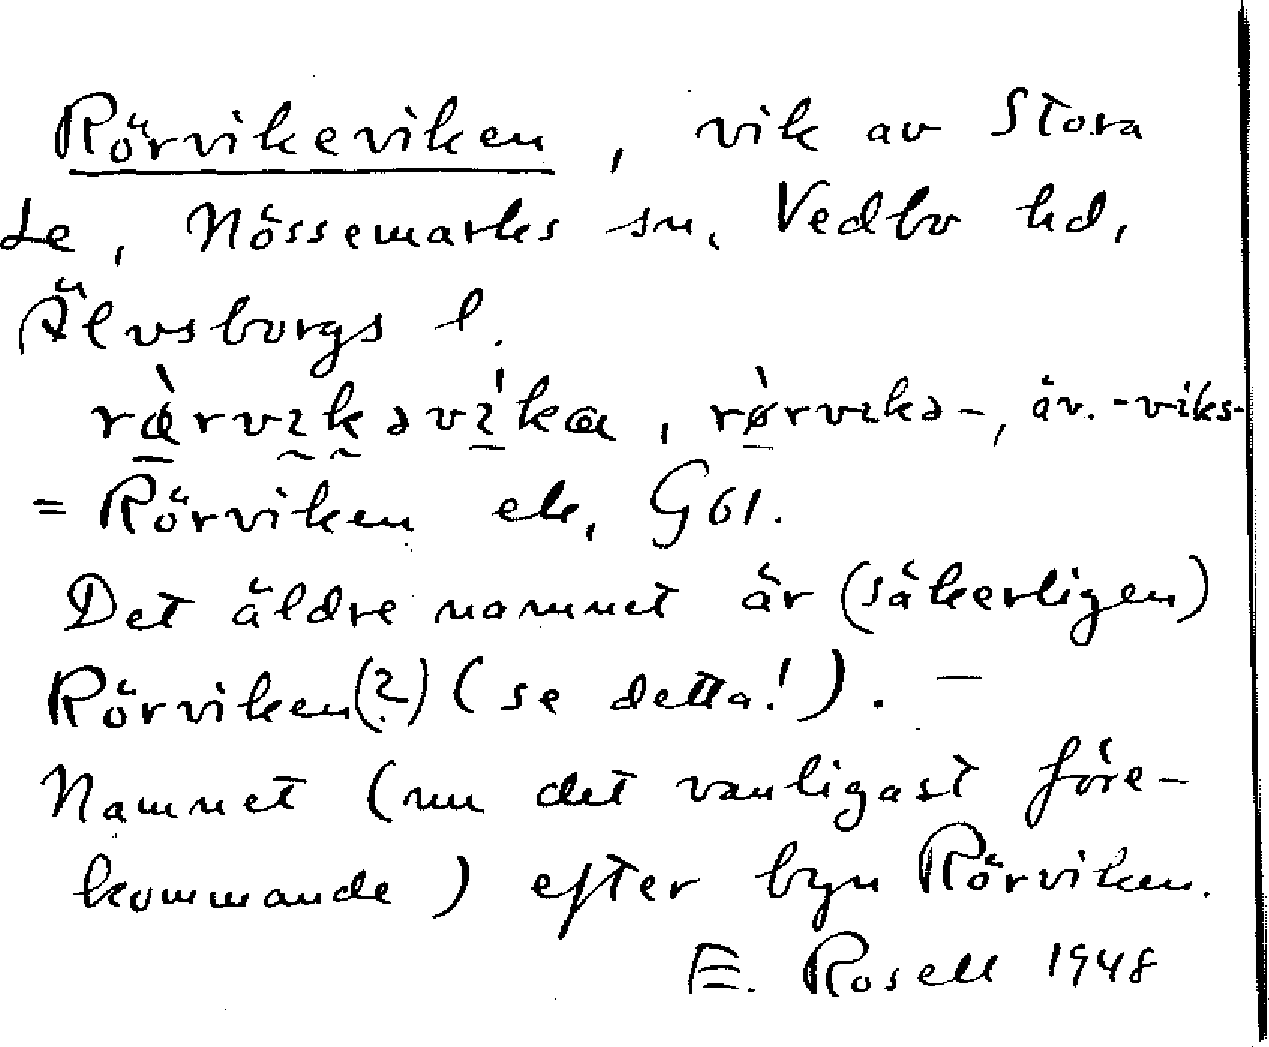 Rörvikeviken, vik av Stora
Le, Nössemarks sn, Vedbo hd,
Älvsborgs l.
rœ̀rvıkəvı́ka, rø̀rvıkə-, äv. -viks-
= Rörviken ek, G61.
Det äldre namnet är (säkerligen)
Rörviken(?) (se detta!). —
Namnet (nu det vanligast före-
kommande) efter byn Rörviken.
E. Rosell 1948